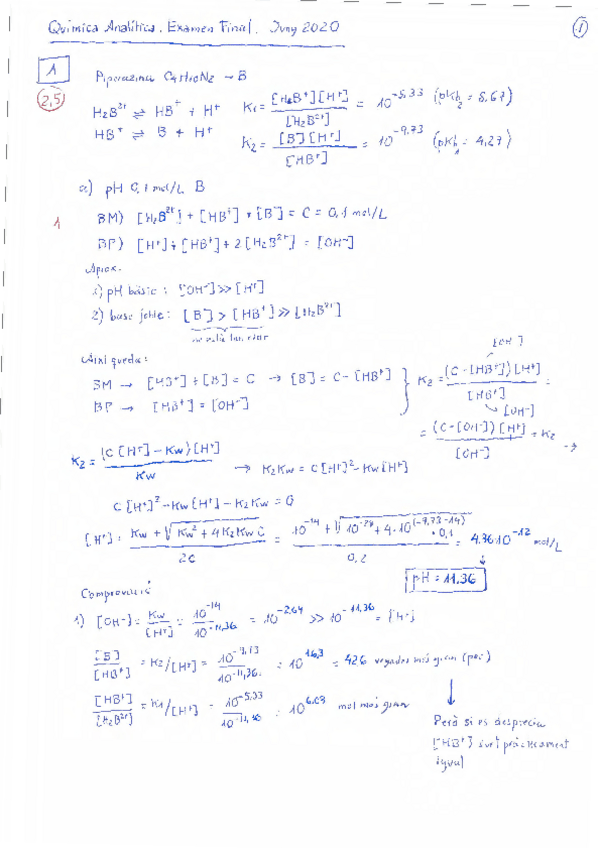 Química Analítica. Examen Final. Juny 2020
1
1
2,5
Piperazina C4H10N2 → B
H2B²⁺ ⇌ HB⁺ + H⁺ K1 = [HB⁺][H⁺] / [H2B²⁺] = 10^-5,33 (pKb2 = 8,67)
HB⁺ ⇌ B + H⁺ K2 = [B][H⁺] / [HB⁺] = 10^-9,73 (pKb1 = 4,27)
a) pH 0,1 mol/L B
1
BM) [H2B²⁺] + [HB⁺] + [B] = C = 0,1 mol/L
BP) [H⁺] + [HB⁺] + 2[H2B²⁺] = [OH⁻]
Aprox.
1) pH bàsic: [OH⁻] >> [H⁺]
2) base feble: [B] > [HB⁺] >> [H2B²⁺]
no està tan clar
[OH⁻]
Així queda:
BM → [HB⁺] + [B] = C → [B] = C - [HB⁺]
BP → [HB⁺] = [OH⁻]
K2 = (C - [HB⁺])[H⁺] / [HB⁺] =
[OH⁻]
= (C - [OH⁻])[H⁺] / [OH⁻] = K2 →
K2 = (C[H⁺] - Kw)[H⁺] / Kw → K2Kw = C[H⁺]² - Kw[H⁺]
C[H⁺]² - Kw[H⁺] - K2Kw = 0
[H⁺] = Kw + √(Kw² + 4K2KwC) / 2C = 10^-14 + √(10^-28 + 4·10^(-9,73-14) · 0,1) / 0,2 = 4,36·10^-12 mol/L
pH = 11,36
Comprovació
1) [OH⁻] = Kw / [H⁺] = 10^-14 / 10^-11,36 = 10^-2,64 >> 10^-11,36 = [H⁺]
[B] / [HB⁺] = K2/[H⁺] = 10^-9,73 / 10^-11,36 = 10^1,63 = 42,6 vegades més gran (poc)
[HB⁺] / [H2B²⁺] = K1/[H⁺] = 10^-5,33 / 10^-11,36 = 10^6,03 molt més gran
Però si es desprecia
[HB⁺] surt pràcticament
igual